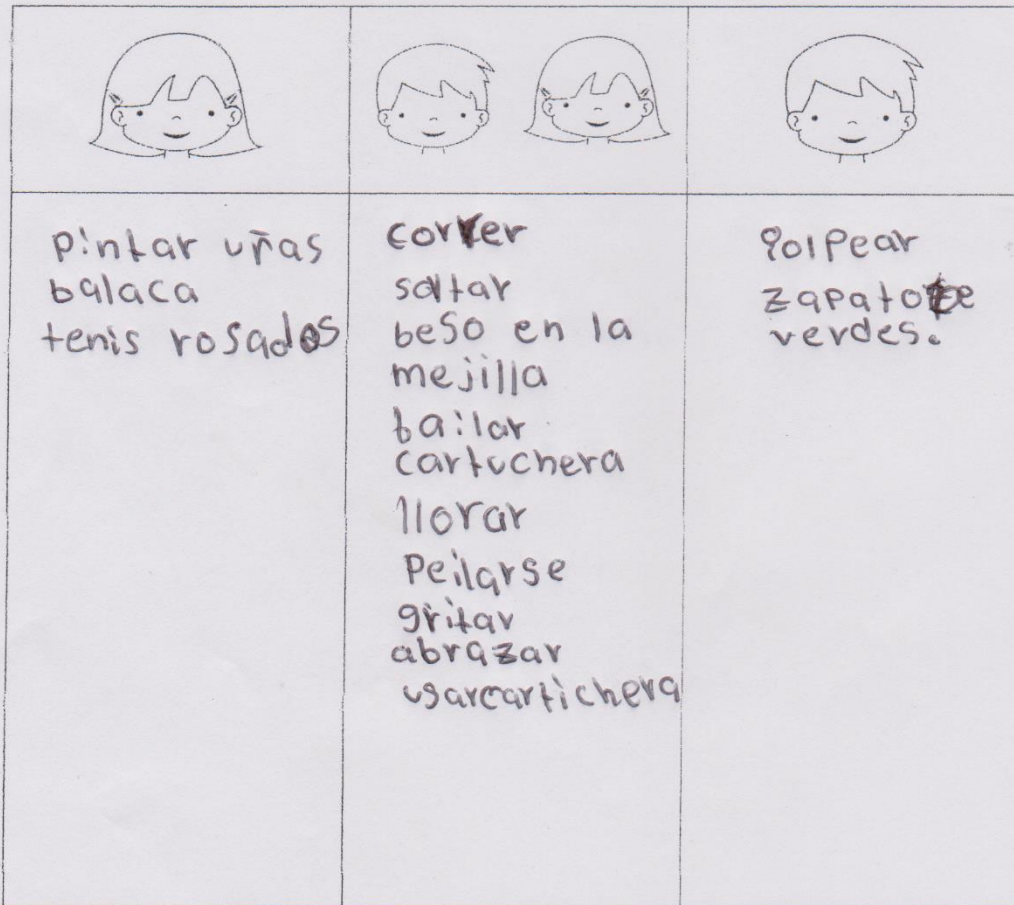 pintar uñas
balaca
tenis rosados
correr
saltar
beso en la
mejilla
bailar
cartuchera
llorar
Peilarse
gritar
abrazar
usarcartichera
golpear
verdes.